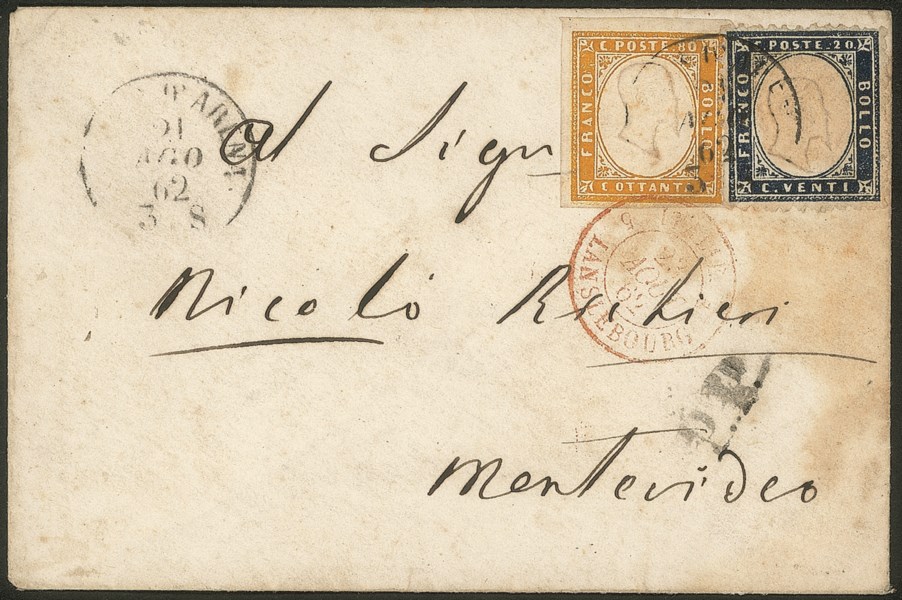 C. POSTE. 80
FRANCO
BOLLO
C. OTTANTA
C. POSTE. 20
FRANCO
BOLLO
C. VENTI
D'ARENA
21
AGO
62
3 S
Al Sign
Nicolò
5
LANSLEBOURG
AOUT
62
P.P.
Montevideo